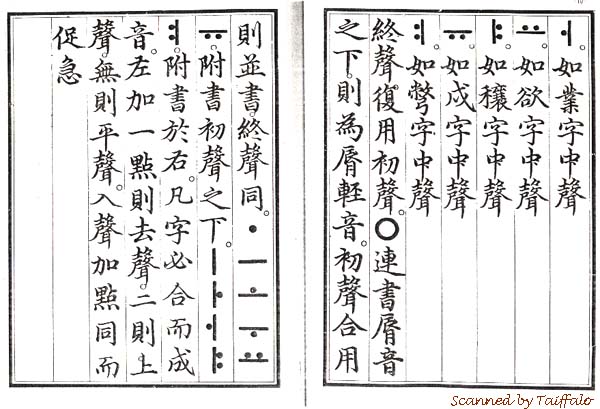 ㅓ。如業字中聲
ㅛ。如欲字中聲
ㅑ。如穰字中聲
ㅠ。如戌字中聲
ㅕ。如彆字中聲
終聲。復用初聲。ㅇ連書脣音
之下。則為脣輕音。初聲合用
則並書終聲同。ㆍㅡㅗㅜㅛ
ㅠ。附書初聲之下。ㅣㅏㅓㅑ
ㅕ。附書於右。凡字必合而成
音。左加一點則去聲。二則上
聲。無則平聲。入聲加點同而
促急
Scanned by Taiffalo